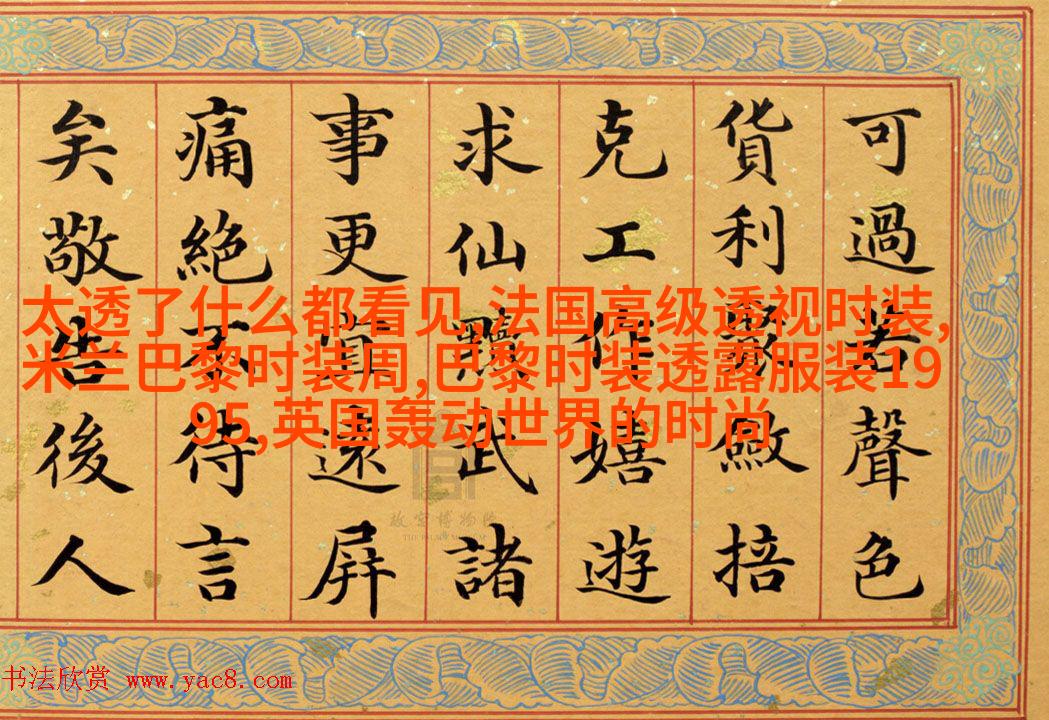 可過若聲色
貨利聚斂掊
克工作嬉遊
求仙黷武諸
事更宜遠屏
痛絕不待言
矣敬告後人
太透了什么都看见,法国高级透视时装,
米兰巴黎时装周,巴黎时装透露服装19
95,英国轰动世界的时尚
故宫博物院
THE PALACE MUSEUM
书法欣赏 www.yac8.com